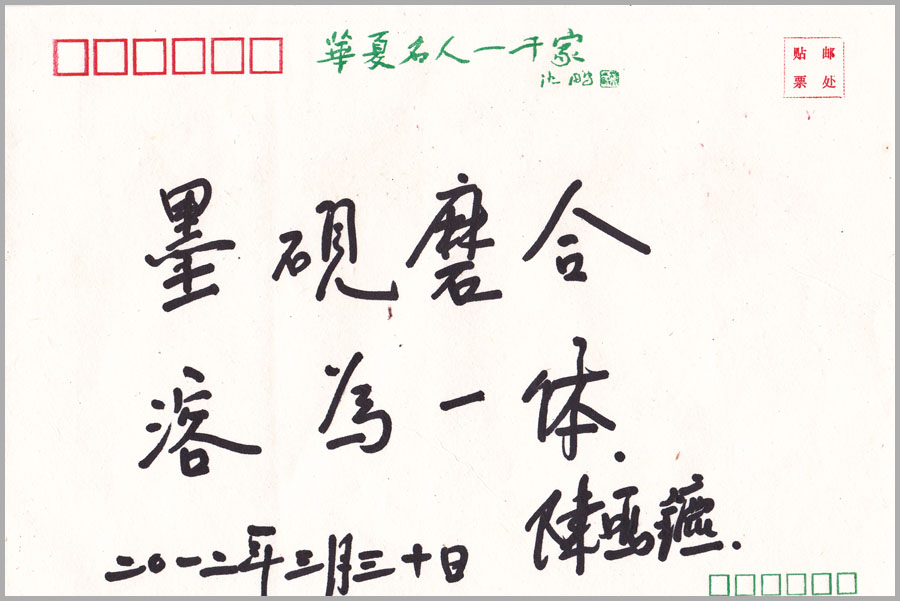 華夏名人一千家
沈鹏
贴邮
票处
墨砚磨合
溶為一体.
陳鳴
二〇一二年三月三十日